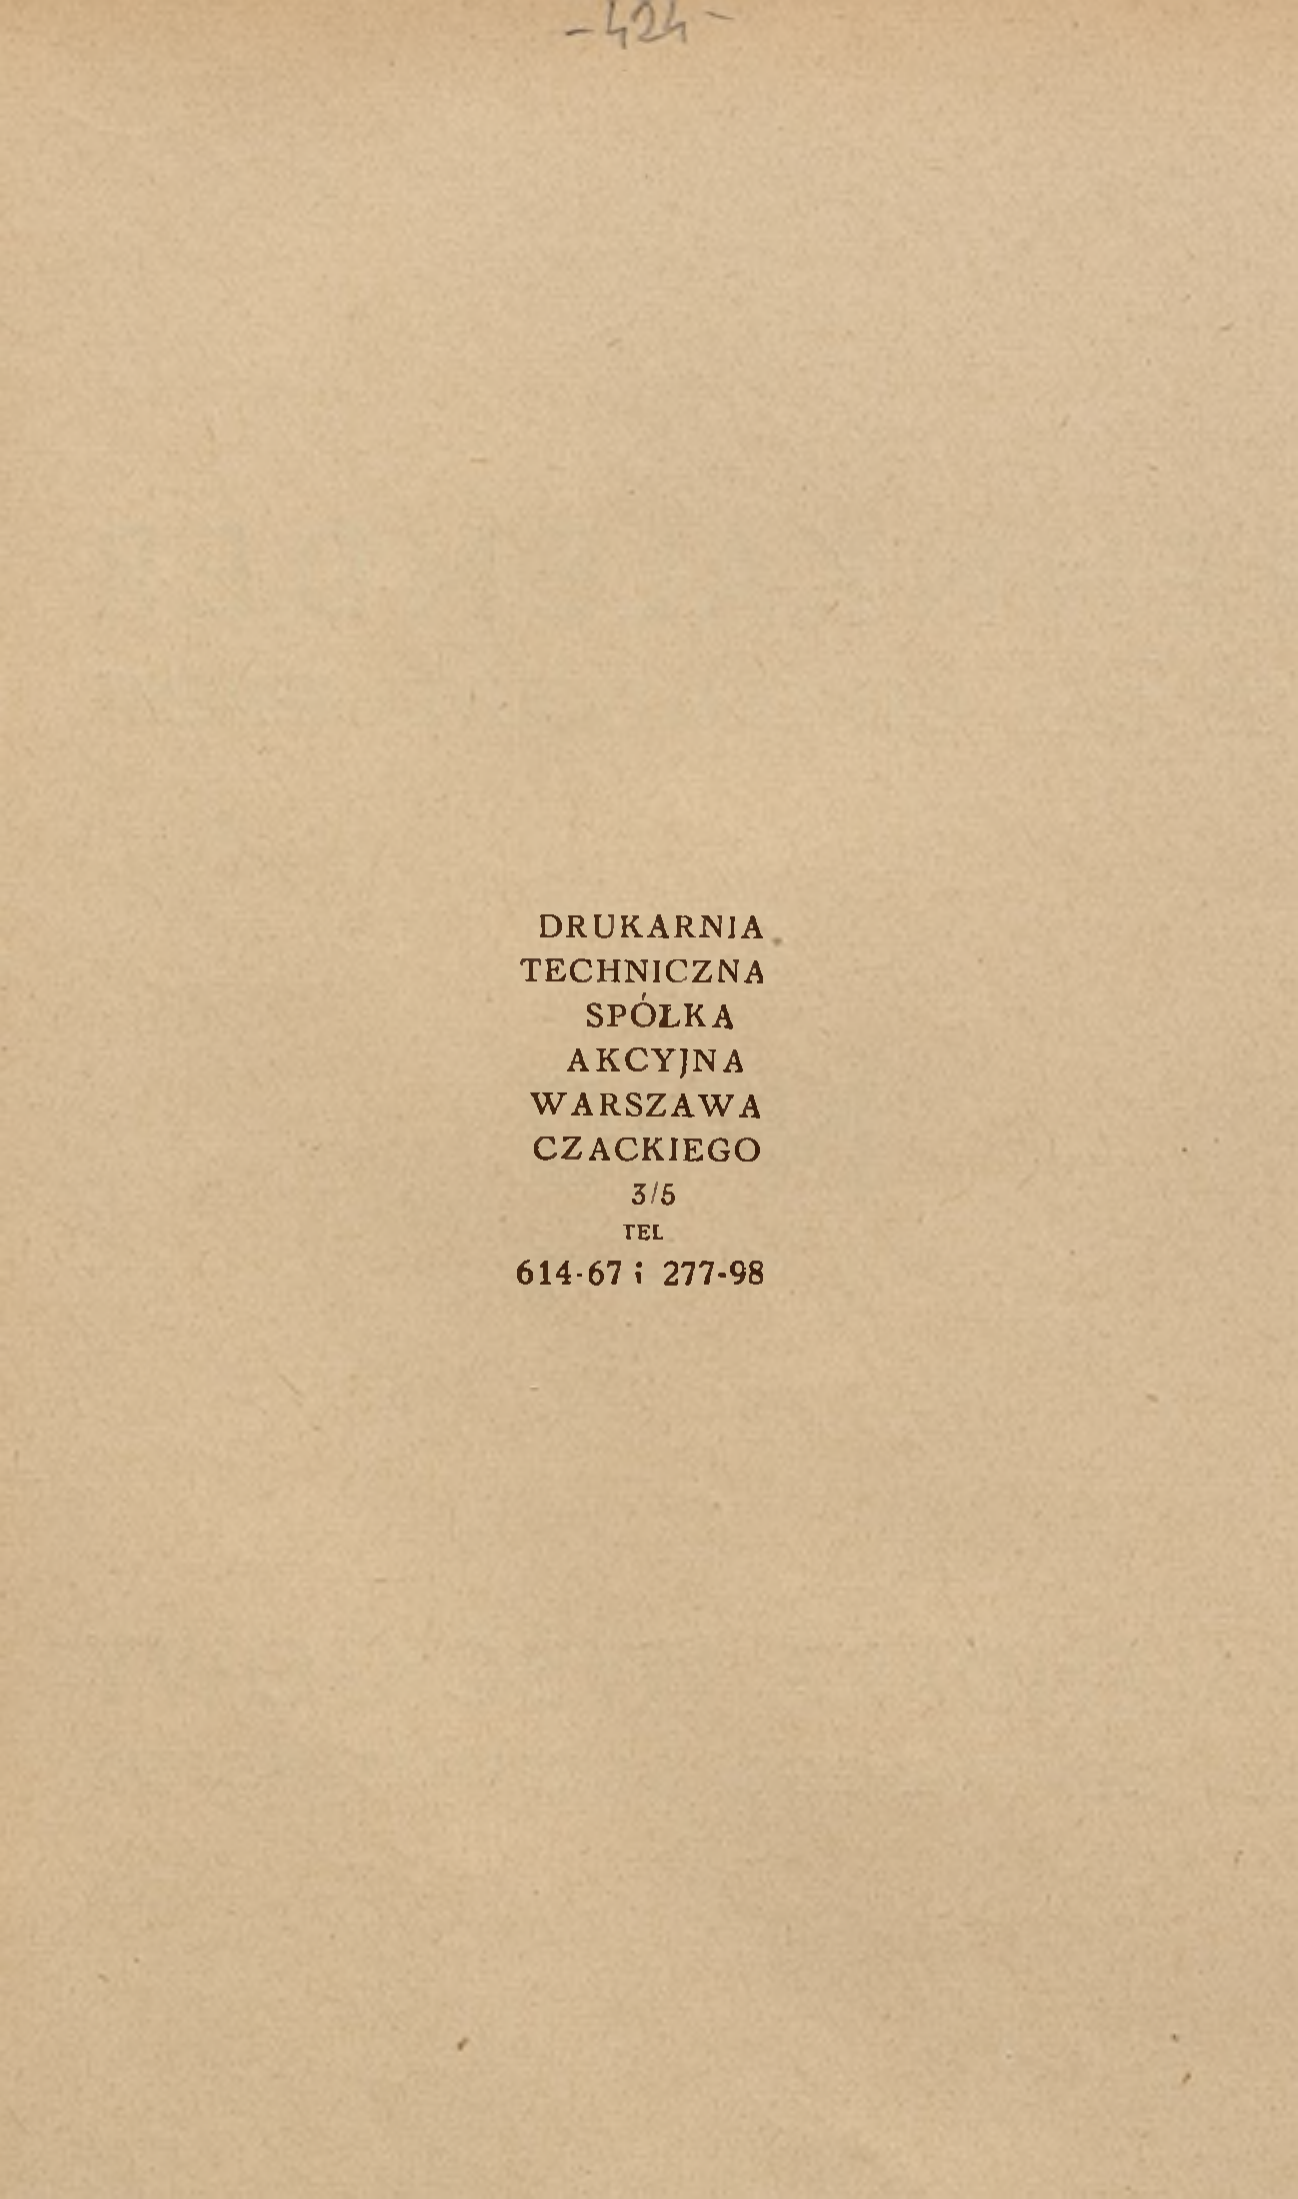 - 424 -
DRUKARNIA
TECHNICZNA
SPÓŁKA
AKCYJNA
WARSZAWA
CZACKIEGO
3/5
TEL
614-67 i 277-98